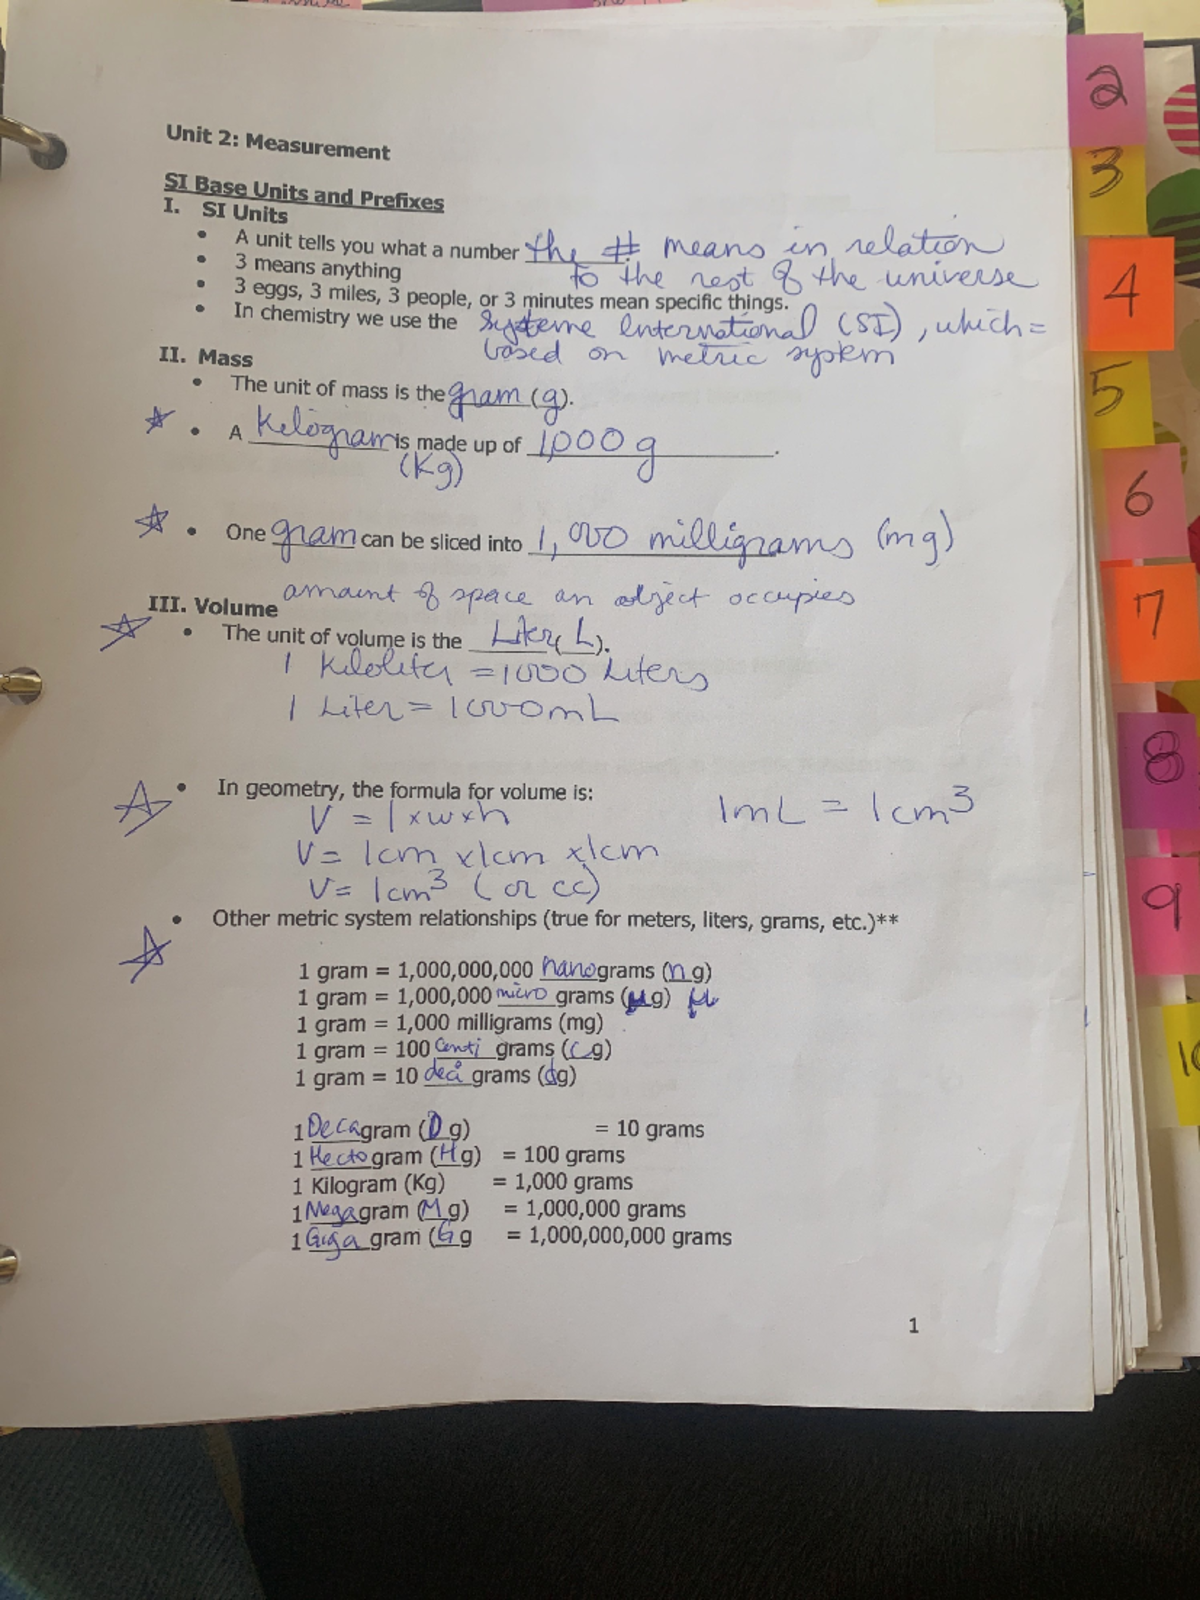 Unit 2: Measurement
SI Base Units and Prefixes
I. SI Units
• A unit tells you what a number the # means in relation
to the rest of the universe
• 3 means anything
• 3 eggs, 3 miles, 3 people, or 3 minutes mean specific things.
• In chemistry we use the Systeme International (SI), which =
based on metric system
II. Mass
• The unit of mass is the gram (g).
• A Kilogram is made up of 1,000 g.
(Kg)
• One gram can be sliced into 1,000 milligrams (mg)
III. Volume amount of space an object occupies
• The unit of volume is the Liter( L).
1 Kiloliter = 1000 Liters
1 Liter = 1000mL
• In geometry, the formula for volume is:
V = l x w x h
1mL = 1cm³
V = 1cm x 1cm x 1cm
V = 1cm³ (or cc)
• Other metric system relationships (true for meters, liters, grams, etc.)**
1 gram = 1,000,000,000 nanograms (ng)
1 gram = 1,000,000 micro grams (μg) μ
1 gram = 1,000 milligrams (mg)
1 gram = 100 Centi grams (cg)
1 gram = 10 deci grams (dg)
1 Decagram (Dg) = 10 grams
1 Hectogram (Hg) = 100 grams
1 Kilogram (Kg) = 1,000 grams
1 Megagram (Mg) = 1,000,000 grams
1 Giga gram (Gg = 1,000,000,000 grams
1
2
3
4
5
6
7
8
9
10